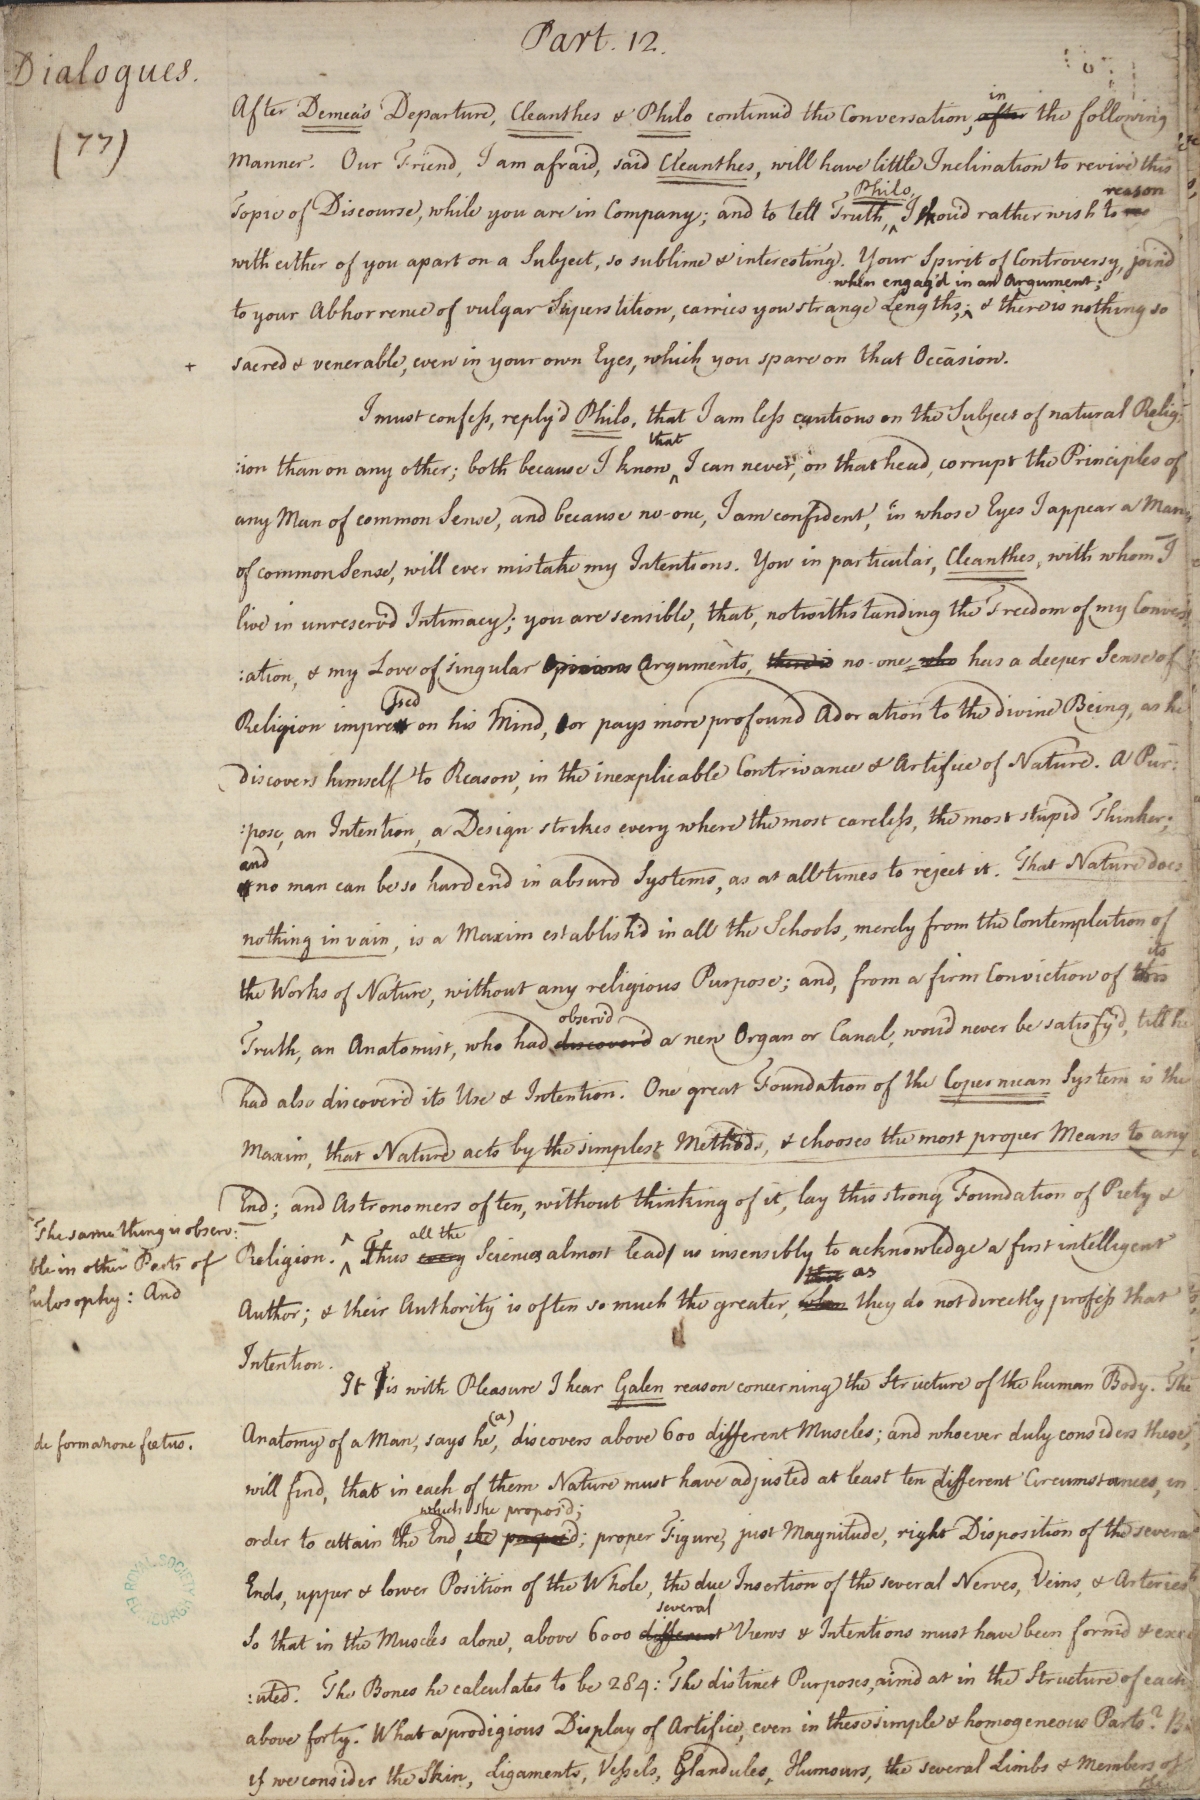 Part. 12.
Dialogues.
(77)
in
After Demea's Departure, Cleanthes & Philo continu'd the Conversation, after the following
manner. Our Friend, I am afraid, said Cleanthes, will have little Inclination to revive this
Philo, reason
Topic of Discourse, while you are in Company; and to tell Truth, ‸ I shou'd rather wish to
with either of you apart on a Subject, so sublime & interesting. Your Spirit of Controversy, join'd
when engag'd in an Argument;
to your Abhorrence of vulgar Superstition, carries you strange Lengths; ‸ & there is nothing so
+ sacred & venerable, even in your own Eyes, which you spare on that Occasion.
I must confess, reply'd Philo, that I am less cautious on the Subject of natural Relig:
that
:ion than on any other; both because I know ‸ I can never, on that head, corrupt the Principles of
any Man of common Sense, and because no-one, I am confident, in whose Eyes I appear a Man
of common Sense, will ever mistake my Intentions. You in particular, Cleanthes, with whom I
live in unreserv'd Intimacy; you are sensible, that, notwithstanding the Freedom of my Convers
:ation, & my Love of singular Opinions Arguments, there is no-one who has a deeper Sense of
ssed
Religion impre on his Mind, or pays more profound Adoration to the divine Being, as he
discovers himself to Reason, in the inexplicable Contrivance & Artifice of Nature. A Pur:
:pose, an Intention, a Design strikes every where the most careless, the most stupid Thinker;
and
no man can be so harden'd in absurd Systems, as at all times to reject it. That Nature does
nothing in vain, is a Maxim establish'd in all the Schools, merely from the Contemplation of
its
the Works of Nature, without any religious Purpose; and, from a firm Conviction of this
observ'd
Truth, an Anatomist, who had discover'd a new Organ or Canal, wou'd never be satisfy'd, till he
had also discover'd its Use & Intention. One great Foundation of the Copernican System is the
Maxim, that Nature acts by the simplest Methods, & chooses the most proper Means to any
End; and Astronomers often, without thinking of it, lay this strong Foundation of Piety &
The same thing is observ:
ble in other Parts of
hilosophy: And
all the
Religion. ‸ Thus every Sciences almost lead us insensibly to acknowledge a first intelligent
that as
Author; & their Authority is often so much the greater, when they do not directly profess that
Intention.
It is with Pleasure I hear Galen reason concerning the Structure of the human Body. The
(a)
de formatione foetus.
Anatomy of a Man, says he, discovers above 600 different Muscles; and whoever duly considers these,
will find, that in each of them Nature must have adjusted at least ten different Circumstances, in
which she propos'd;
order to attain the End, she propos'd; proper Figure, just Magnitude, right Disposition of the several
Ends, upper & lower Position of the Whole, the due Insertion of the several Nerves, Veins, & Arteries
several
So that in the Muscles alone, above 6000 different Views & Intentions must have been form'd & exec
:uted. The Bones he calculates to be 284: The distinct Purposes, aim'd at in the Structure of each
above forty. What a prodigious Display of Artifice, even in these simple & homogeneous Parts? B
if we consider the Skin, Ligaments, Vessels, Glandules, Humours, the several Limbs & Members of
ROYAL SOCIETY
EDINBURGH